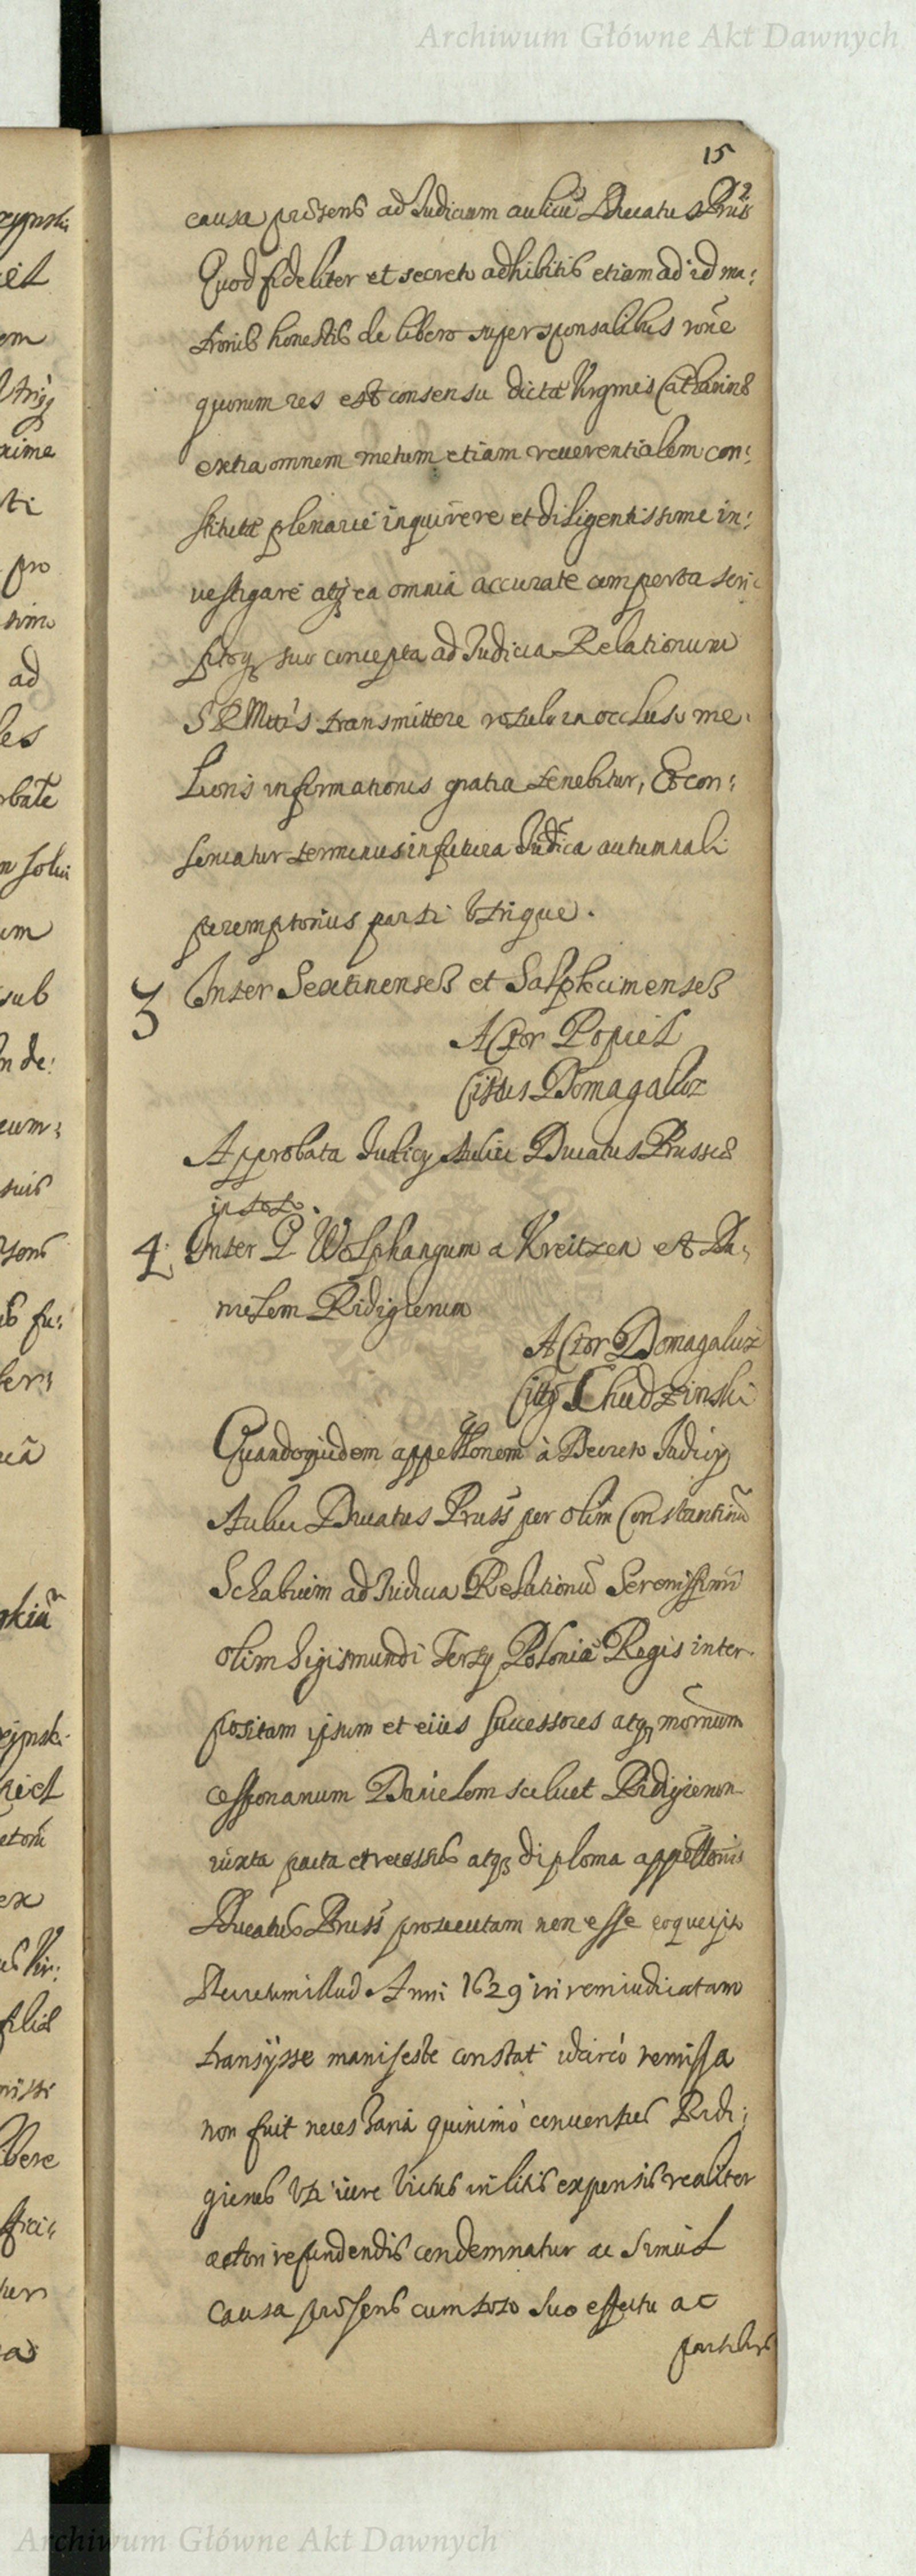 Archiwum Główne Akt Dawnych
15
causa prӕsens ad Judicium aulicū Ducatus Prus
Quod fideliter et secreto adhibitis etiam ad id ma:
tronis honestis de libero super sponsalibus rōne
quorum res est consensu dictæ Virginis Catharinæ
extra omnem metum etiam reuerentialem con:
stitutæ plenarie inquirere et diligentissime in:
uestigare atq; ea omnia accurate comperta scri:
ptoq; suo concepta ad Judicia Relationum
S R Mttis transmittere rotulo in occluso me:
lioris informationis gratia tenebitur, Et con:
seruatur terminus in futura Judica autumnali
peremptorius parti vtrique.
3 Inter Sextinenses et Salphcimenses
Actor Popiel
Citus Domagalicz
Approbata Judicy Aulici Ducatus Prussiæ
in toto.
4. Inter G Wolphangum a Kreitzen et Da:
nielem Ridigierum
Actor Domagalicz
Citq Chudzinski
Quandoquidem appellōnem à Decreto Judicy
Aulici Ducatus Pruss per olim Constantinū
Schabium ad Judicia Relationū Serenissimi
olim Sigismundi Terty Poloniæ Regis inter:
positam ipsum et eius successores atq; mōrnum
cessionarium Danielem scilicet Ridigierum
iuxta pacta et recessus atq; diploma appellōnis
Ducatus Pruss prosecutam non esse eoque ipso
Decretum illud Anni 1629 in rem iudicatam
transysse manifeste constat idcircò remissa
non fuit necessaria quinimò conuentus Ridi:
gierus vti iure victus in litis expensis realiter
actori refundendis condemnatur ac simul
causa prӕsens cum toto suo effectu ac
partibus
Archiwum Główne Akt Dawnych